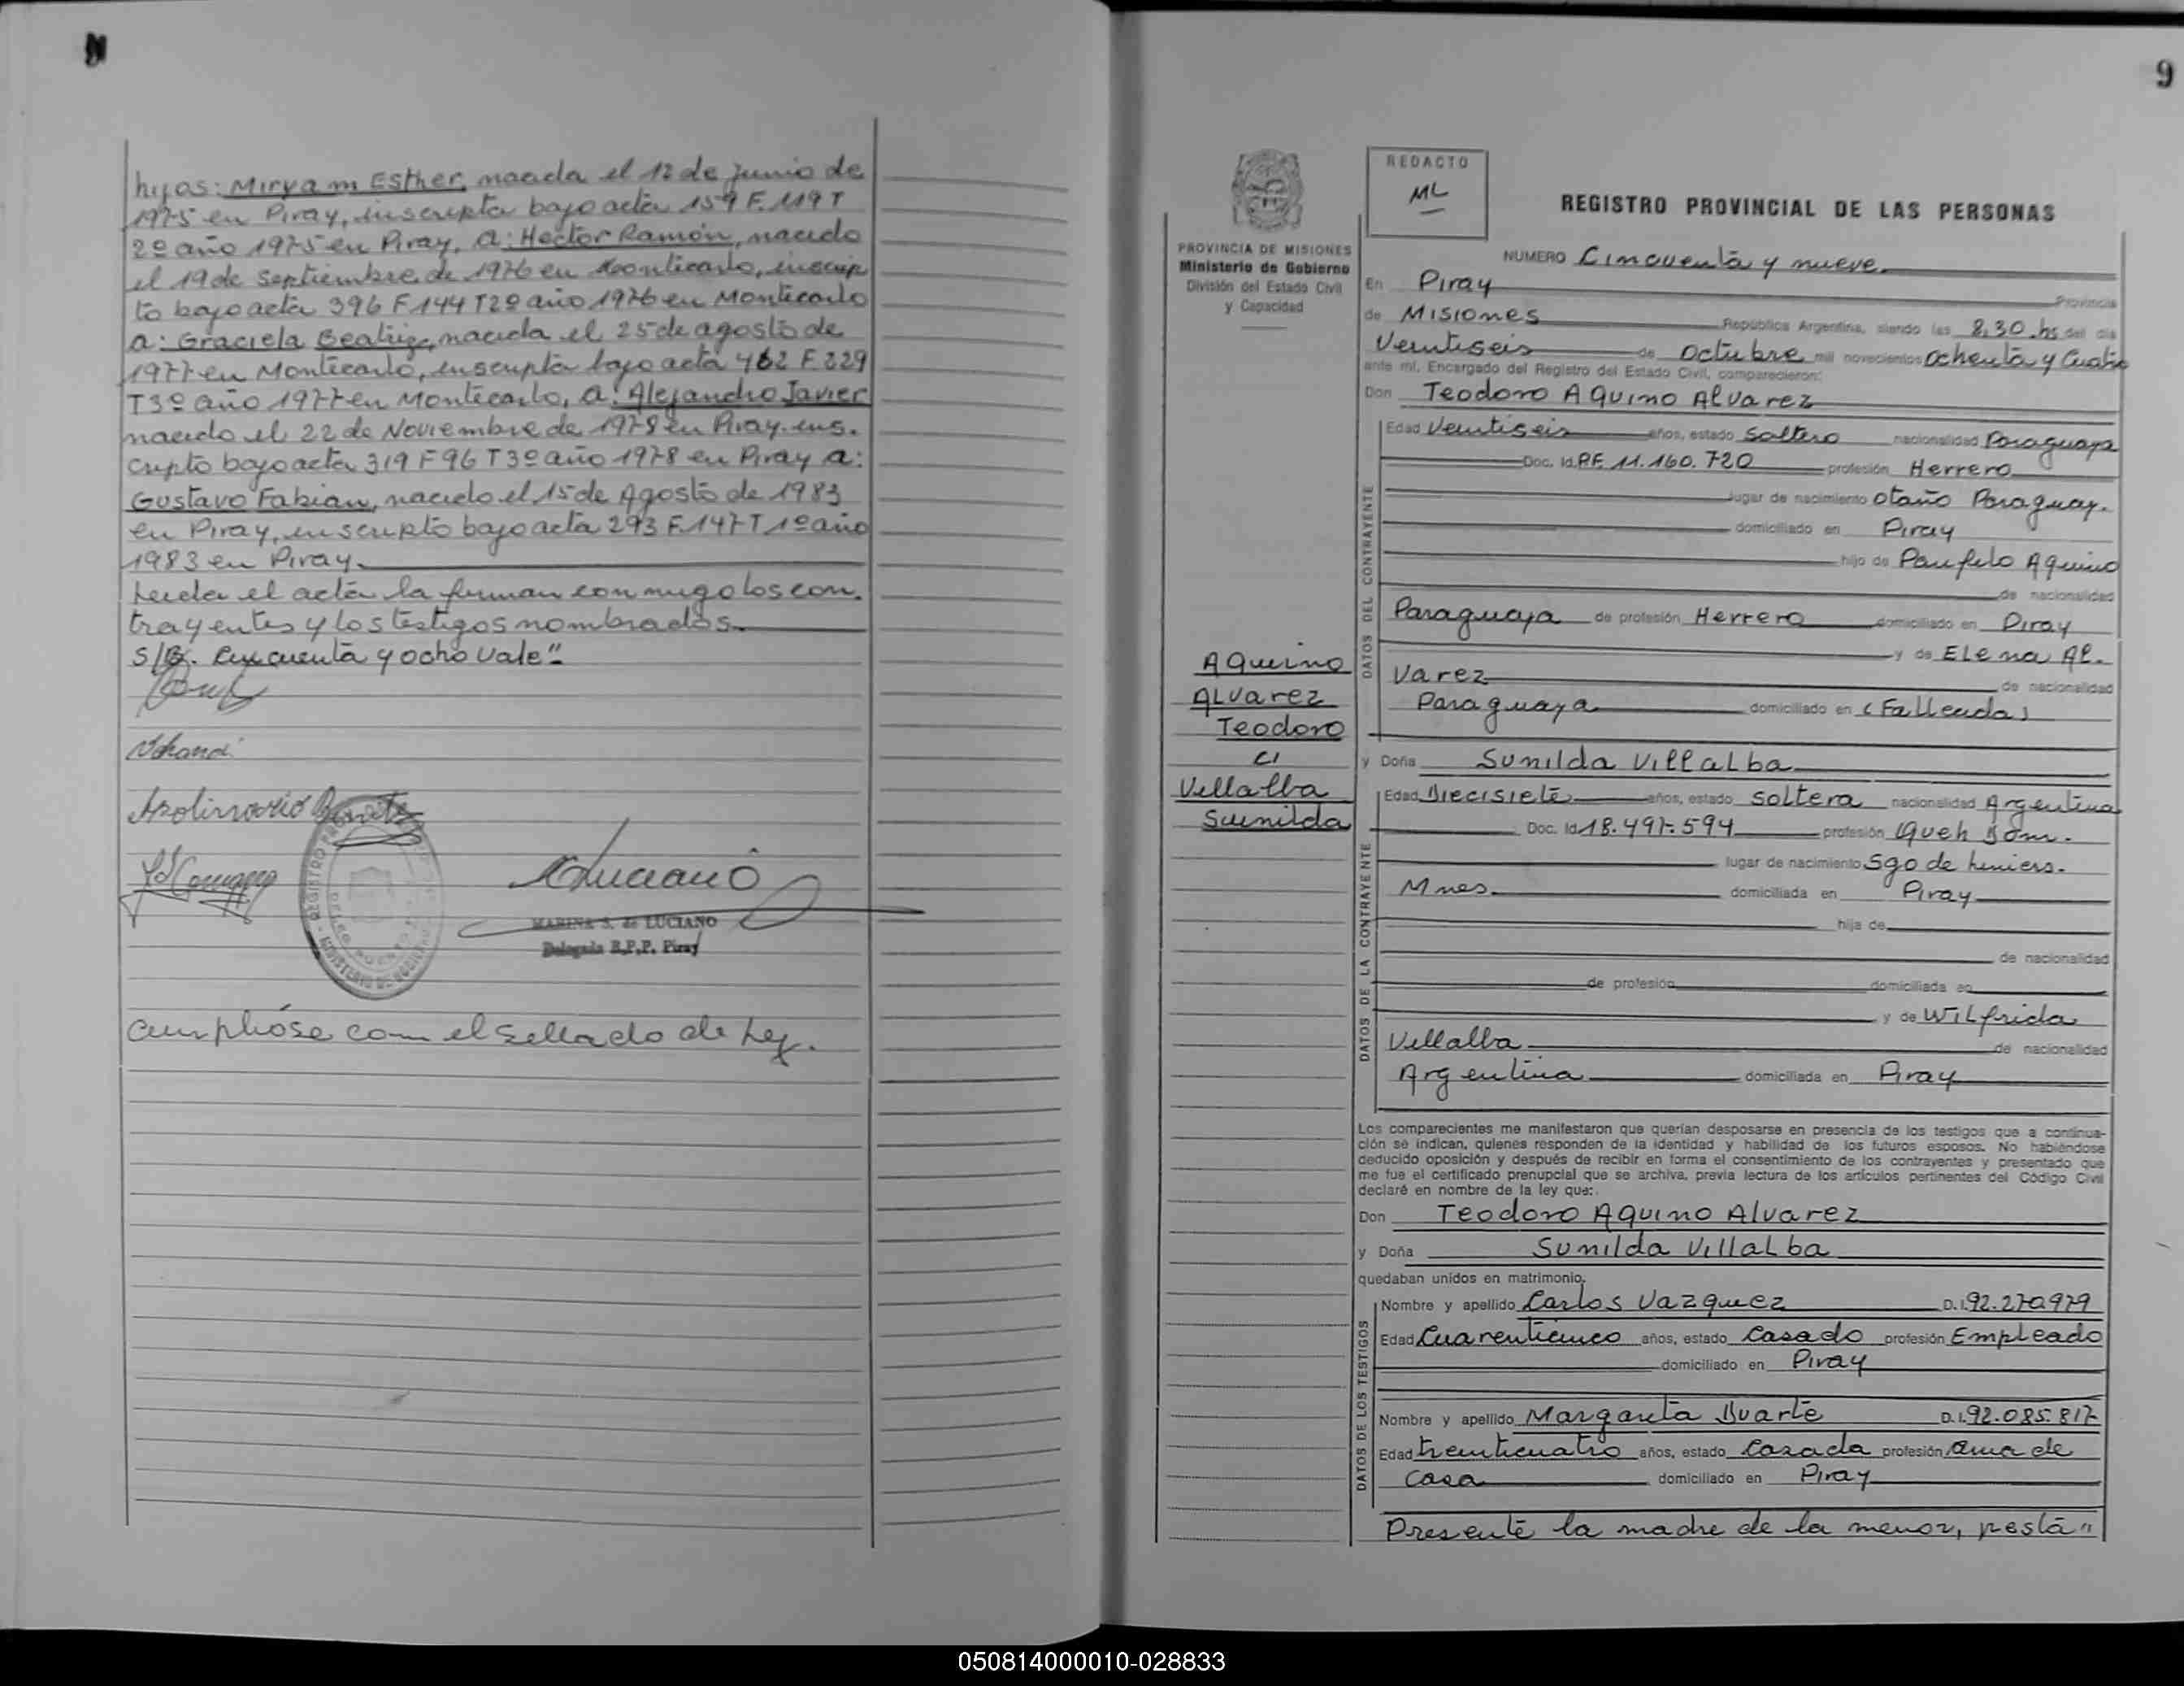 hijos: Miryam Esther, nacida el 12 de junio de
1975 en Piray, inscripta bajo acta 159 F. 119 T
2º año 1975 en Piray, a: Hector Ramón, nacido
el 19 de septiembre de 1976 en Montecarlo, inscrip
to bajo acta 396 F 144 T2º año 1976 en Montecarlo
a: Graciela Beatriz, nacida el 25 de agosto de
1977 en Montecarlo, inscripta bajo acta 462 F. 229
T3º año 1977 en Montecarlo, a: Alejandro Javier
nacido el 22 de Noviembre de 1978 en Piray. ins.
cripto bajo acta 319 F 96 T 3º año 1978 en Piray a:
Gustavo Fabian, nacido el 15 de Agosto de 1983
en Piray, inscripto bajo acta 293 F. 147 T 1º año
1983 en Piray.
Leida el acta la firman conmigo los con.
trayentes y los testigos nombrados.
S/B. Cincuenta y ocho Vale"
Apolinario
Luciano
MARINA S. de LUCIANO
Delegada R.P.P. Piray
Cumplióse con el sellado de Ley.
9
PROVINCIA DE MISIONES
Ministerio de Gobierno
División del Estado Civil
y Capacidad
REDACTO
ML
REGISTRO PROVINCIAL DE LAS PERSONAS
NUMERO Cincuenta y nueve
En Piray Provincia
de Misiones República Argentina, siendo las 8,30 hs del día
Veintiseis de Octubre mil novecientos Ochenta y Cuatro
ante mí, Encargado del Registro del Estado Civil, comparecieron:
Don Teodoro Aquino Alvarez
DATOS DEL CONTRAYENTE
Edad Veintiseis años, estado Soltero nacionalidad Paraguaya
Doc. Id. P.F. 11.160.720 profesión Herrero
lugar de nacimiento Otaño Paraguay.
domiciliado en Piray
hijo de Panfilo Aquino
de nacionalidad
Paraguaya de profesión Herrero domiciliado en Piray
y de Elena Al.
varez de nacionalidad
Paraguaya domiciliado en (Fallecida)
Aquino
Alvarez
Teodoro
c/
Villalba
Sunilda
y Doña Sunilda Villalba
DATOS DE LA CONTRAYENTE
Edad Diecisiete años, estado Soltera nacionalidad Argentina
Doc. Id 18.497.594 profesión Queh Dom.
lugar de nacimiento Sgo de Liniers.
Mnes. domiciliada en Piray
hija de
de nacionalidad
de profesión domiciliada en
y de Wilfrida
Villalba de nacionalidad
Argentina domiciliada en Piray
Los comparecientes me manifestaron que querían desposarse en presencia de los testigos que a continua-
ción se indican, quienes responden de la identidad y habilidad de los futuros esposos. No habiéndose
deducido oposición y después de recibir en forma el consentimiento de los contrayentes y presentado que
me fue el certificado prenupcial que se archiva, previa lectura de los artículos pertinentes del Código Civil
declaré en nombre de la ley que:
Don Teodoro Aquino Alvarez
y Doña Sunilda Villalba
quedaban unidos en matrimonio.
DATOS DE LOS TESTIGOS
Nombre y apellido Carlos Vazquez D.I. 92.270.979
Edad Cuarenticinco años, estado Casado profesión Empleado
domiciliado en Piray
Nombre y apellido Margarita Duarte D.I. 92.085.817
Edad treinticuatro años, estado Casada profesión ama de
casa domiciliado en Piray
Presente la madre de la menor, presta"
050814000010-028833